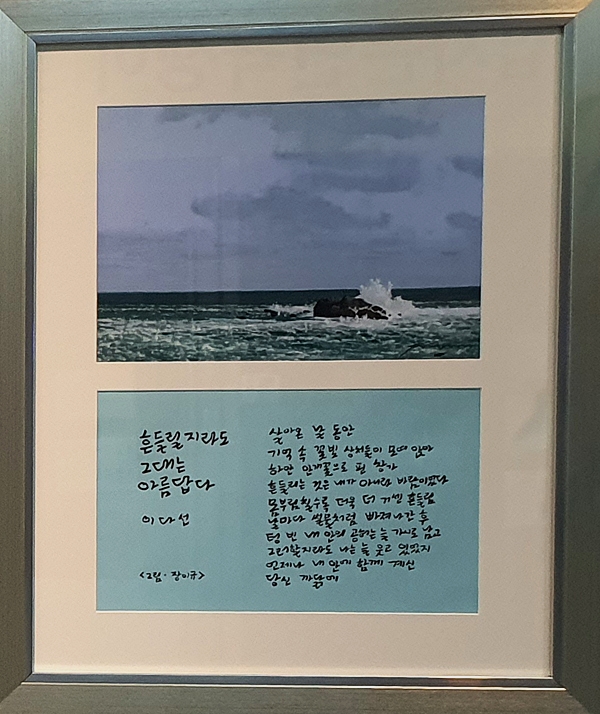 흔들릴지라도
그대는
아름답다
이다선
<그림·장이규>
살아온 날 동안
기억 속 꽃빛 상처들이 모여 앉아
하얀 안개꽃으로 핀 창가
흔들리는 것은 내가 아니라 바람이었다
몸부림칠수록 더욱 더 거센 흔들림
날마다 썰물처럼 빠져나간 후
텅 빈 내 안의 공허는 늘 가시로 남고
그러할지라도 나는 늘 웃고 있었지
언제나 내 안에 함께 계신
당신 까닭에